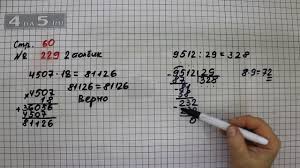 4 на 5
Стр. 60
№ 229 2 столбик
4507 · 18 = 81126
81126 = 81126
Верно
× 4507
18
+ 36056
4507
81126
9512 : 29 = 328
9512 | 29
87 328
81
58
232
0
8·9=72